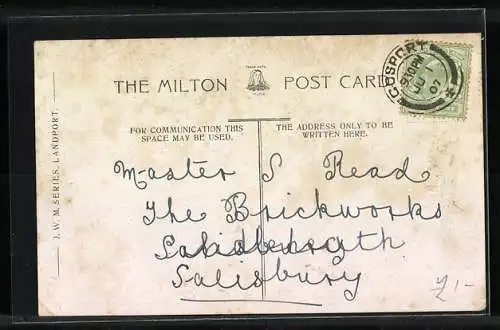 THE MILTON POST CARD
TRADE MARK
FOR COMMUNICATION THIS
SPACE MAY BE USED.
THE ADDRESS ONLY TO BE
WRITTEN HERE.
J. W. M. SERIES, LANDPORT.
GOSPORT
9.30PM
JU
07
Master S Read
The Brickworks
Salisbury
£1-